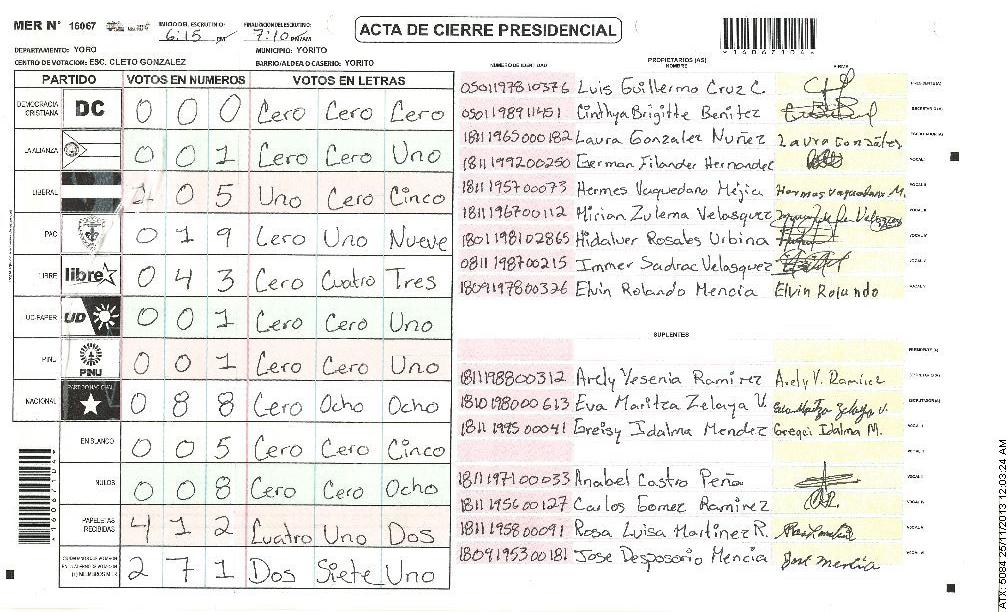 MER N° 16067
INICIO DEL ESCRUTINIO: 6:15 PM
FINALIZACION DEL ESCRUTINIO: 7:10 PM/AM
ACTA DE CIERRE PRESIDENCIAL
*160671046*
DEPARTAMENTO: YORO
MUNICIPIO: YORITO
CENTRO DE VOTACION: ESC. CLETO GONZALEZ
BARRIO/ALDEA O CASERIO: YORITO
PARTIDO VOTOS EN NUMEROS VOTOS EN LETRAS
DEMOCRACIA CRISTIANA DC 0 0 0 Cero Cero Cero
LA ALIANZA 0 0 1 Cero Cero Uno
LIBERAL 1 0 5 Uno Cero Cinco
PAC 0 1 9 Cero Uno Nueve
LIBRE libre 0 4 3 Cero Cuatro Tres
UD-FAPER UD 0 0 1 Cero Cero Uno
PINU PINU 0 0 1 Cero Cero Uno
NACIONAL PARTIDO NACIONAL 0 8 8 Cero Ocho Ocho
EN BLANCO 0 0 5 Cero Cero Cinco
NULOS 0 0 8 Cero Cero Ocho
PAPELETAS RECIBIDAS 4 1 2 Cuatro Uno Dos
2 7 1 Dos Siete Uno
NUMERO DE IDENTIDAD PROPIETARIOS (AS) NOMBRE FIRMA
0501197810376 Luis Guillermo Cruz C. PRESIDENTE(A)
0501198911451 Cinthya Brigitte Benitez SECRETARIO(A)
1811196500182 Laura Gonzalez Nuñez Laura Gonzáles ESCRUTADOR(A)
1811199200250 German Filander Hernandez VOCAL I
1811195700073 Hermes Vaquedano Mejia Hermes Vaquedano M. VOCAL II
1811196700112 Mirian Zulema Velasquez VOCAL III
1801198102865 Hidalver Rosales Urbina VOCAL IV
0811198700215 Immer Sadrac Velasquez VOCAL V
1809197800326 Elvin Rolando Mencia Elvin Rolando
SUPLENTES
1811198800312 Arely Yesenia Ramirez Arely V. Ramirez
1810198000613 Eva Maritza Zelaya V. Eva Maritza Zelaya V. ESCRUTADOR(A)
1811199500041 Greisy Idalma Mendez Idalma M. VOCAL I
1811197100033 Anabel Castro Peña
1811195600127 Carlos Gomez Ramirez
1811195800091 Rosa Luisa Martinez R.
1809195300181 Jose Desposorio Mencia José Mencia
*160671046*
ATX: 5084 25/11/2013 12:03:24 AM